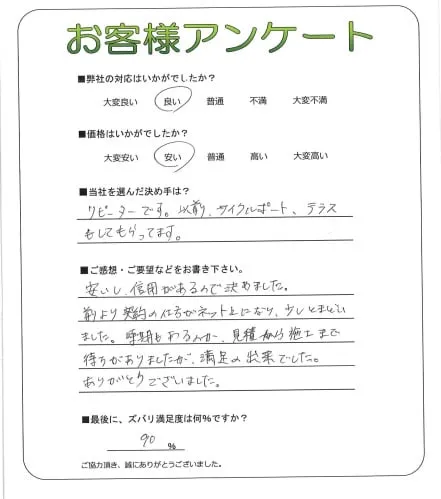 お客様アンケート
■弊社の対応はいかがでしたか?
大変良い 良い 普通 不満 大変不満
■価格はいかがでしたか?
大変安い 安い 普通 高い 大変高い
■当社を選んだ決め手は?
リピーターです。以前、サイクルポート、テラス
もしてもらってます。
■ご感想・ご要望などをお書き下さい。
安いし、信用があるので決めました。
前より契約の仕方がネット上になり、少しとまどい
ました。時期もあるのか、見積から施工まで
待ちがありましたが、満足の出来でした。
ありがとうございました。
■最後に、ズバリ満足度は何%ですか?
90 %
ご協力頂き、誠にありがとうございました。